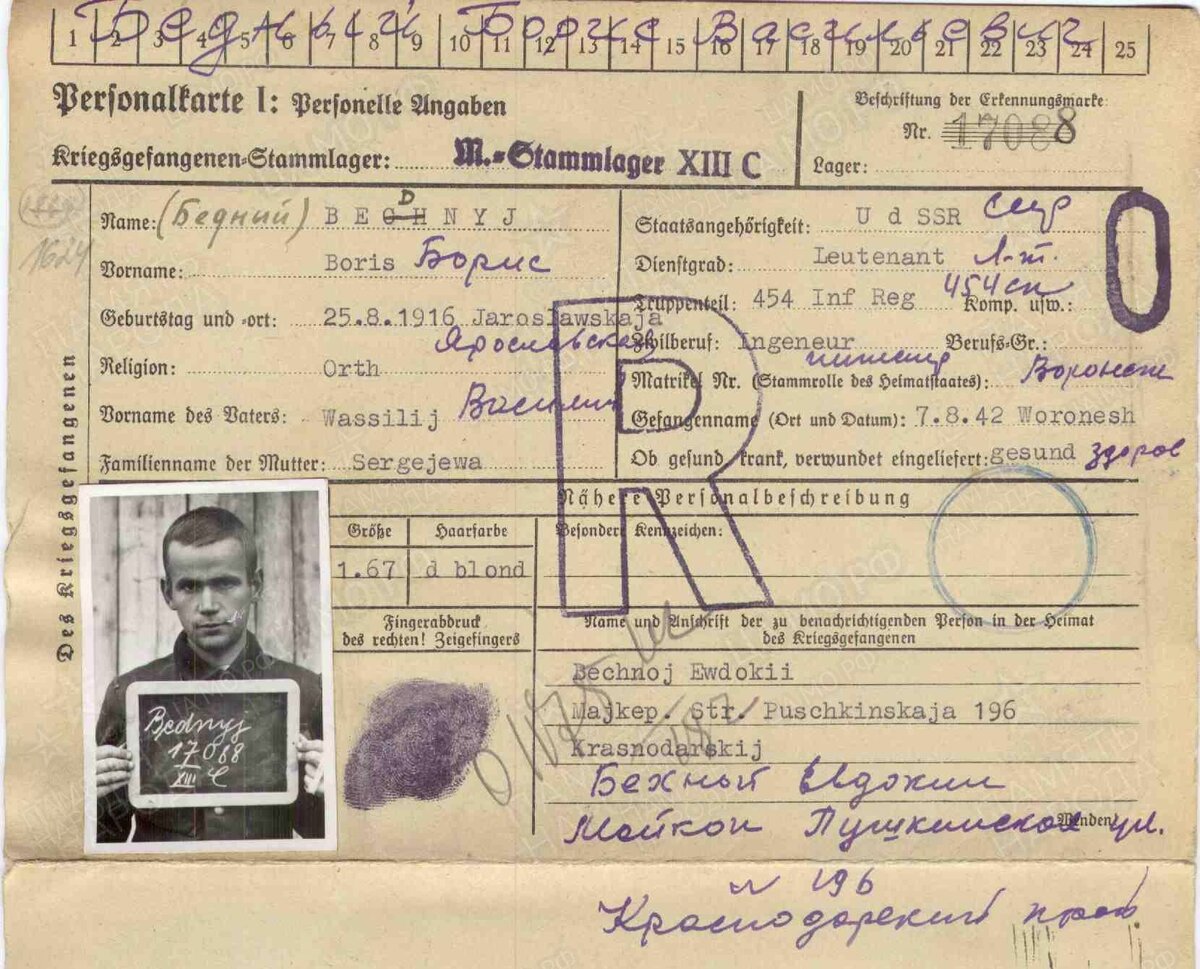 Бедный Борис Васильевич
1 2 3 4 5 6 7 8 9 10 11 12 13 14 15 16 17 18 19 20 21 22 23 24 25
Personalkarte I: Personelle Angaben
Beschriftung der Erkennungsmarke:
Nr. 17088
Kriegsgefangenen-Stammlager: M.-Stammlager XIII C
Lager:
Des Kriegsgefangenen
1624
Name: (Бедний) BECHNYJ D
Vorname: Boris Борис
Geburtstag und -ort: 25.8.1916 Jaroslawskaja
Ярославская
Religion: Orth
Vorname des Vaters: Wassilij Василий
Familienname der Mutter: Sergejewa
Staatsangehörigkeit: U d SSR СССР
Dienstgrad: Leutenant Л-т.
Truppenteil: 454 Inf Reg 454 сп Komp. usw.:
Zivilberuf: Ingeneur Berufs-Gr.:
инженер
Matrikel Nr. (Stammrolle des Heimatstaates): Воронеж
Gefangenname (Ort und Datum): 7.8.42 Woronesh
Ob gesund krank, verwundet eingeliefert: gesund здоров
R
Nähere Personalbeschreibung
Größe Haarfarbe Besondere Kennzeichen:
1.67 d blond
Fingerabdruck
des rechten! Zeigefingers
Name und Anschrift der zu benachrichtigenden Person in der Heimat
des Kriegsgefangenen
Bechnoj Ewdokii
Majkep. Str. Puschkinskaja 196
Krasnodarskij
Бехный Евдокии
Майкоп Пушкинская ул.
Wenden!
N 196
Краснодарский край.
Bjednyj
17088
XIII C